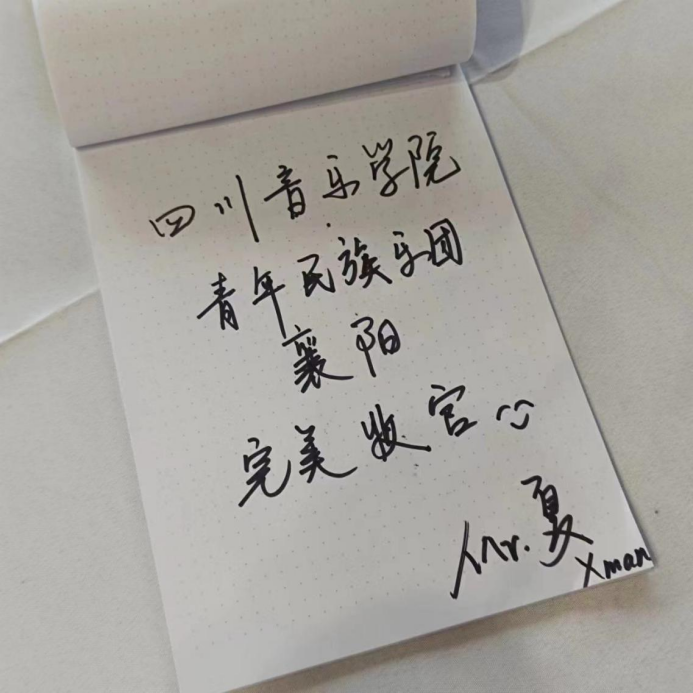 四川音乐学院
青年民族乐团
襄阳
完美收官
Mr.夏
Xman